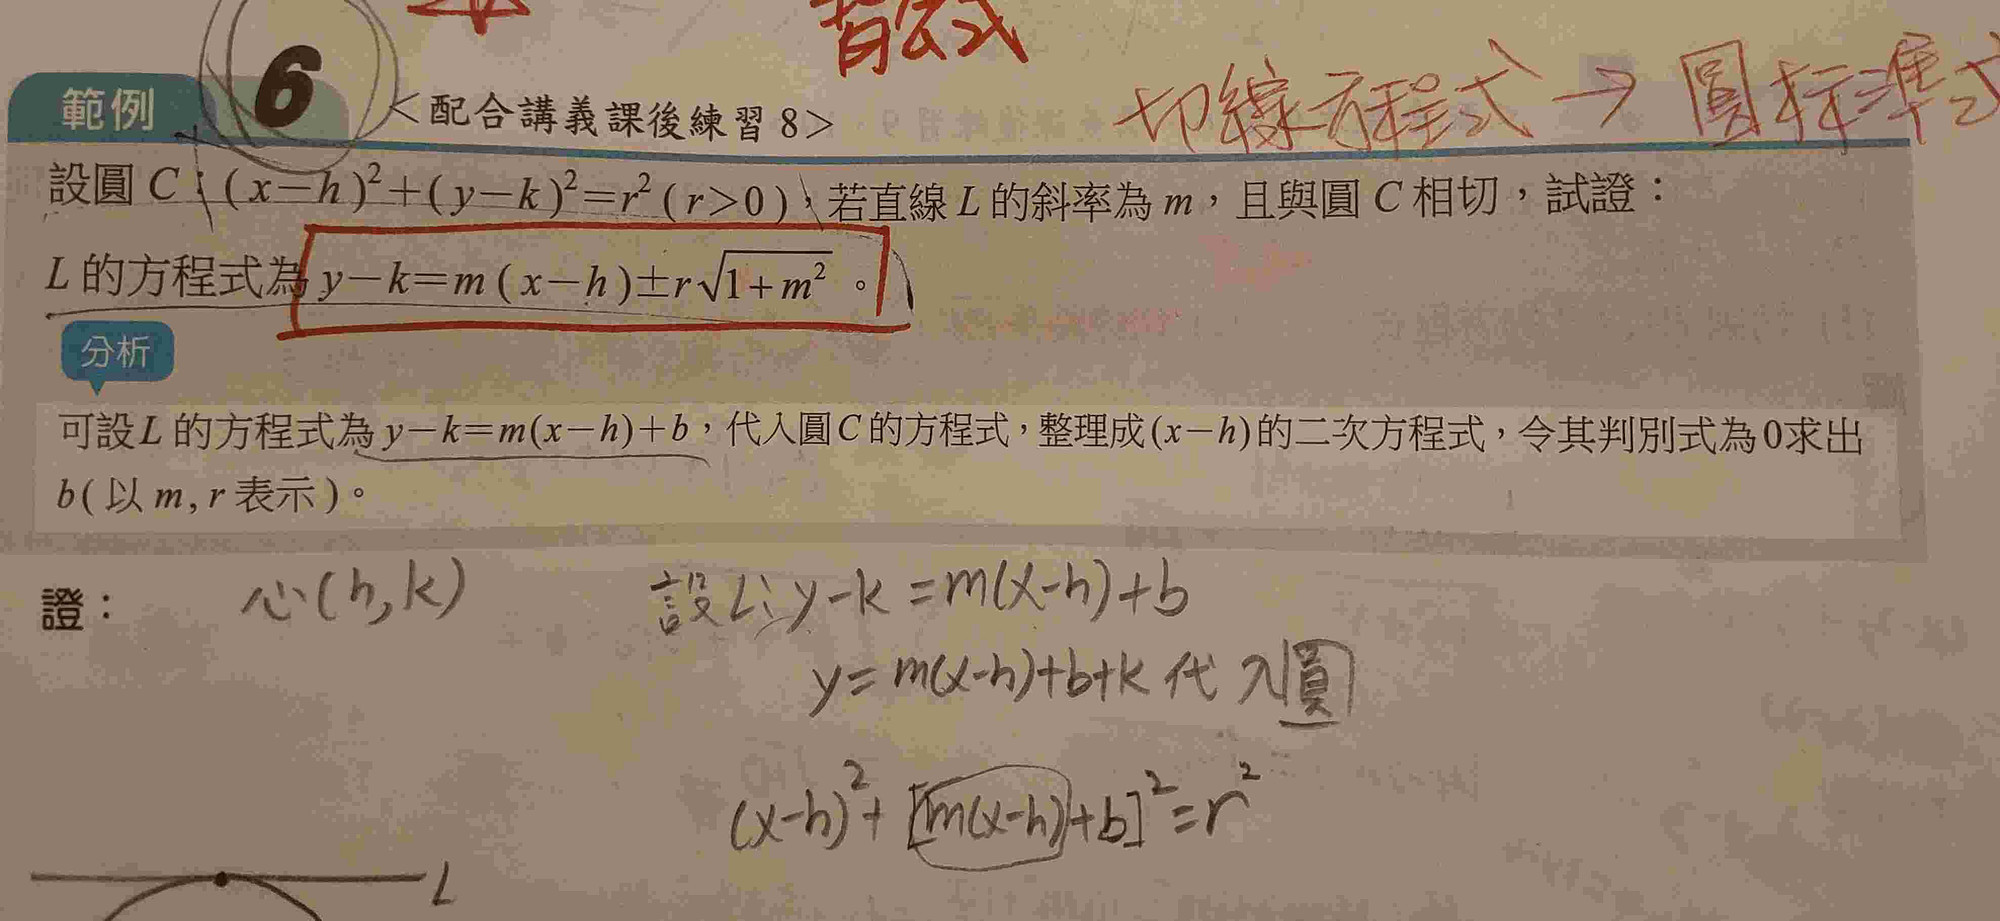 背公式
切線方程式→圓標準式
範例 6 <配合講義課後練習 8>
設圓 C：(x－h)²＋(y－k)²＝r² (r＞0)，若直線 L 的斜率為 m，且與圓 C 相切，試證：
L 的方程式為 y－k＝m(x－h)±r√(1＋m²)。
分析
可設 L 的方程式為 y－k＝m(x－h)＋b，代入圓 C 的方程式，整理成(x－h)的二次方程式，令其判別式為 0 求出
b(以 m, r 表示)。
證： 心(h,k) 設L: y-k=m(x-h)+b
y=m(x-h)+b+k 代入圓
(x-h)²+[m(x-h)+b]²=r²
L